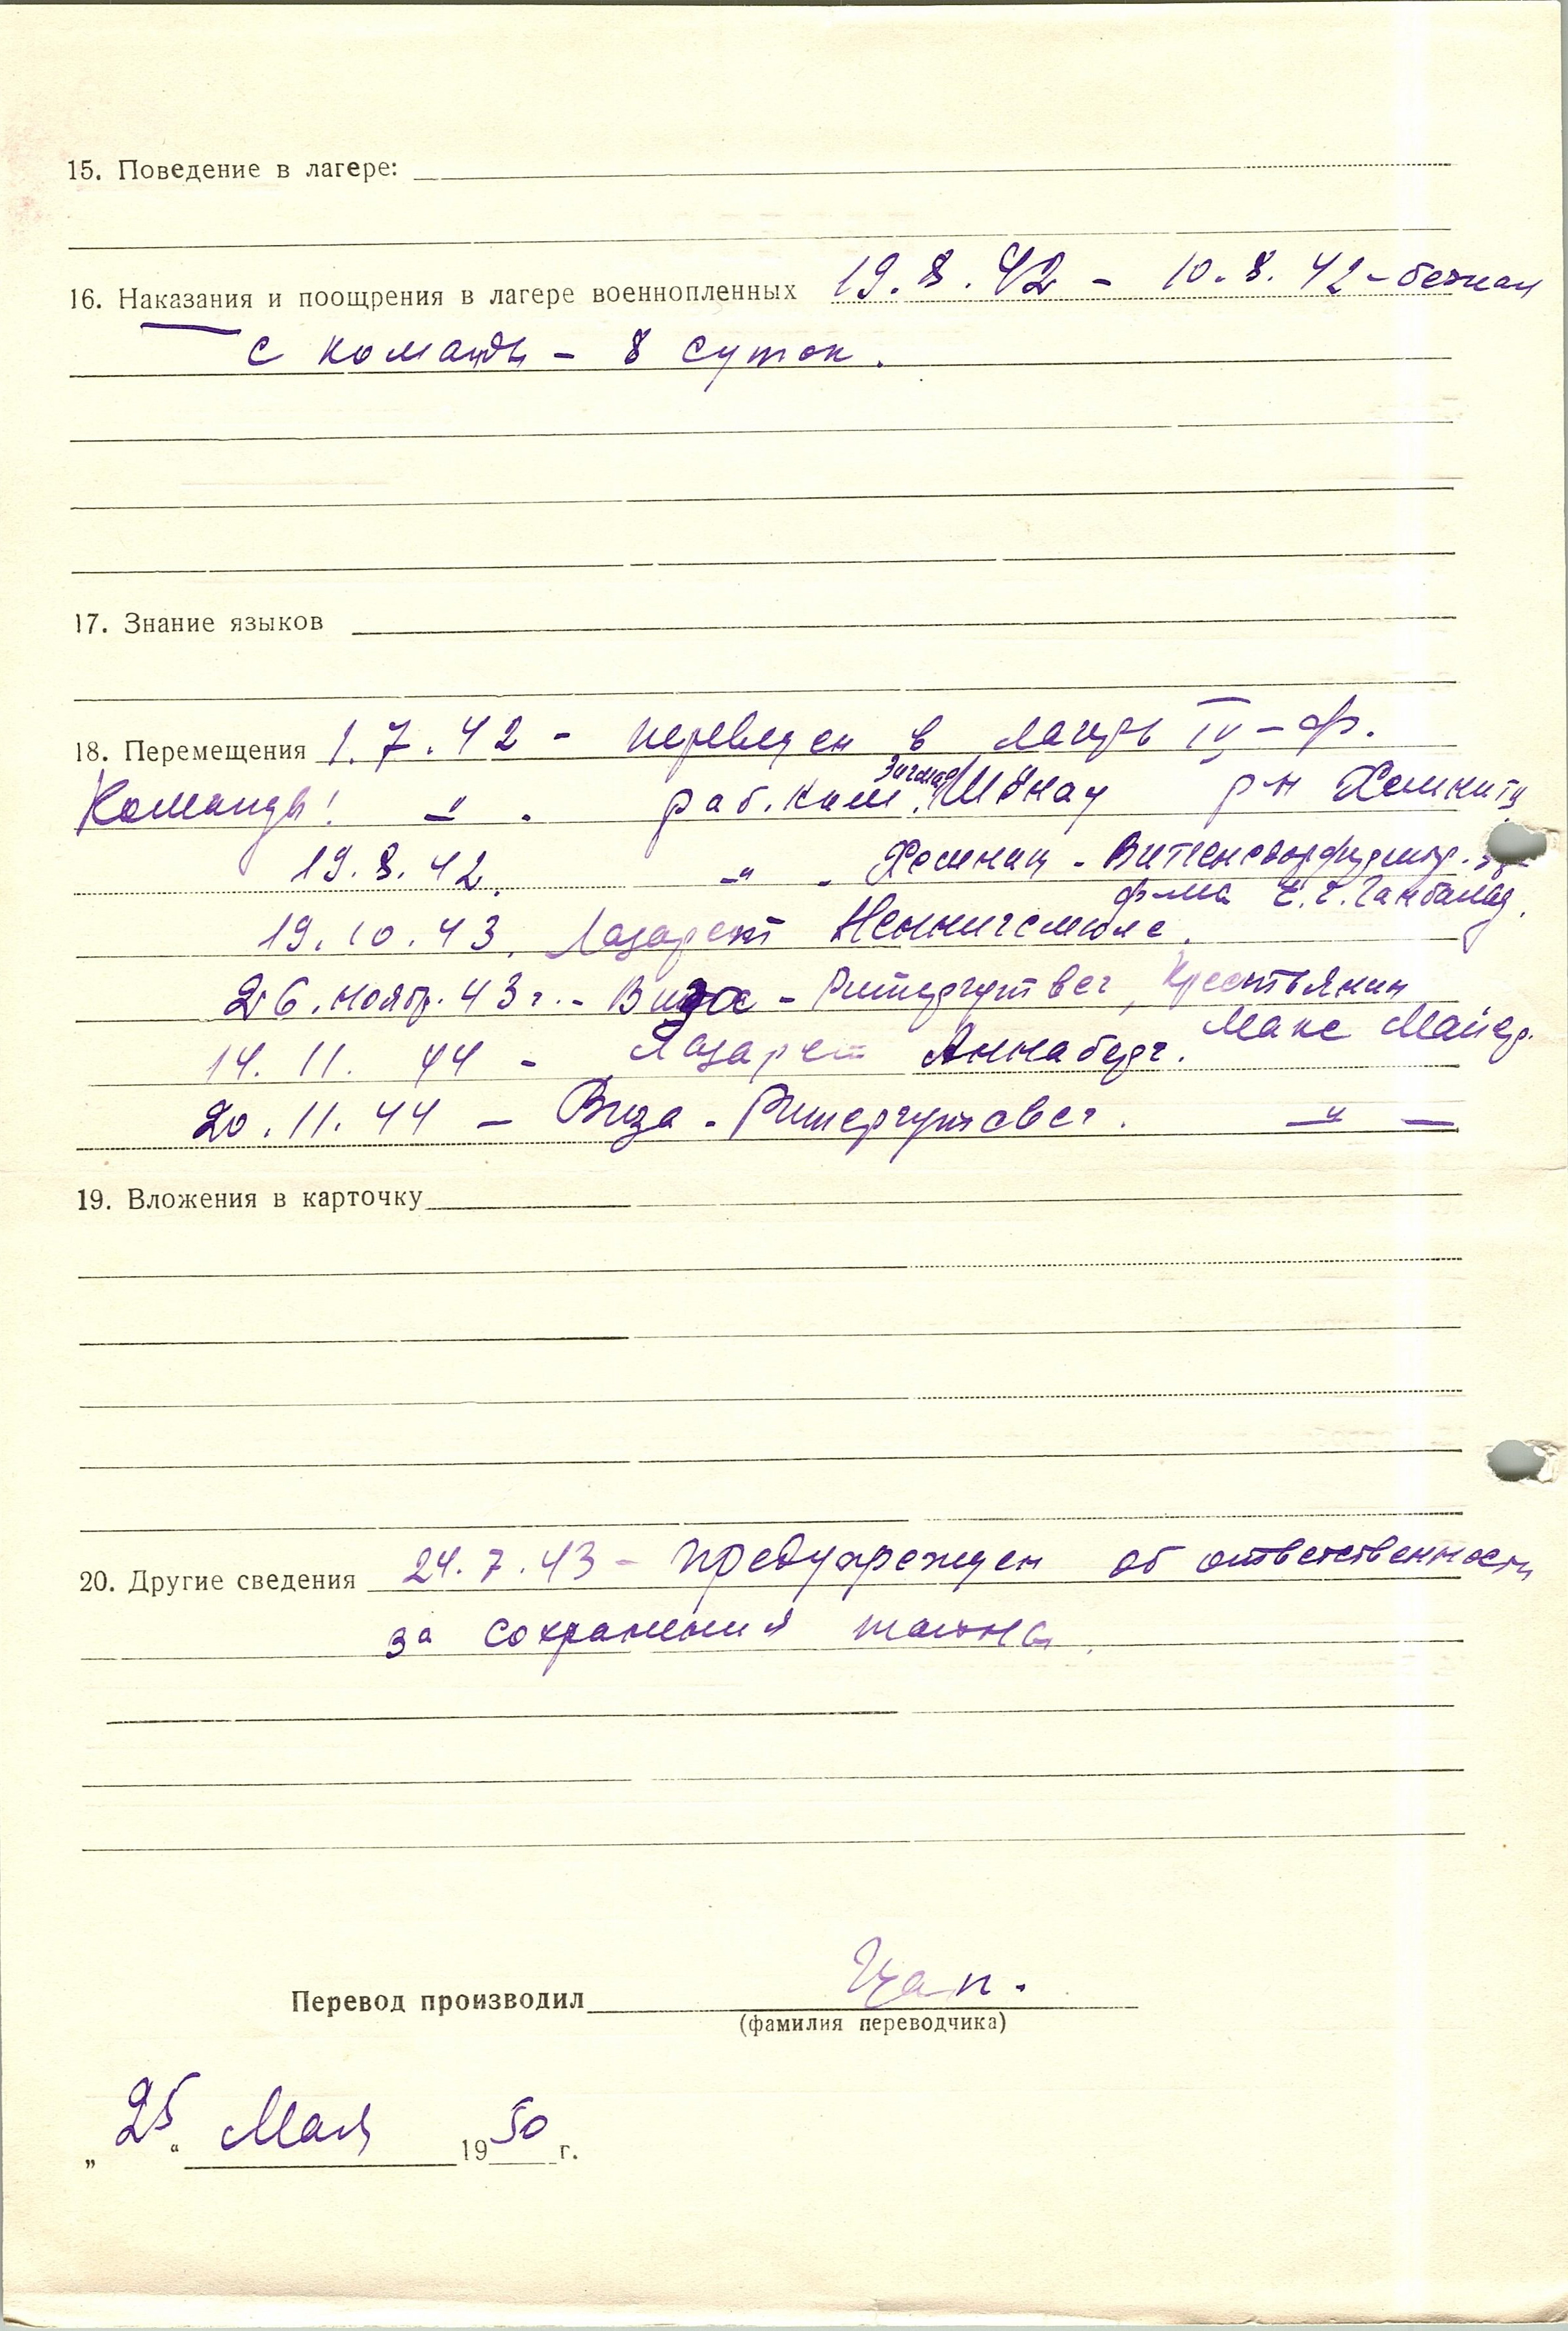 15. Поведение в лагере:
16. Наказания и поощрения в лагере военнопленных 19.8.42 - 10.8.42 - бежал
с команды - 8 суток.
17. Знание языков
18. Перемещения 1.7.42 - переведен в лагерь IV-ф.
Команды! -"-. раб. ком. Шёнау р-н Хемниц
19.8.42. -"- - Хемниц -
ф-ма
19.10.43. Лазарет Хеннигсмюле.
26. ноябр. 43 г. - Виза - Ритергутвег, Крестьянин
14. 11. 44 - Лазарет Аннаберг. Макс Майер.
20.11.44 - Виза - Ритергутсвег. -"-
19. Вложения в карточку
20. Другие сведения 24.7.43 - предупрежден об ответственности
за сохранения тайны.
Перевод производил Цап.
(фамилия переводчика)
„25“ Мая 1950 г.